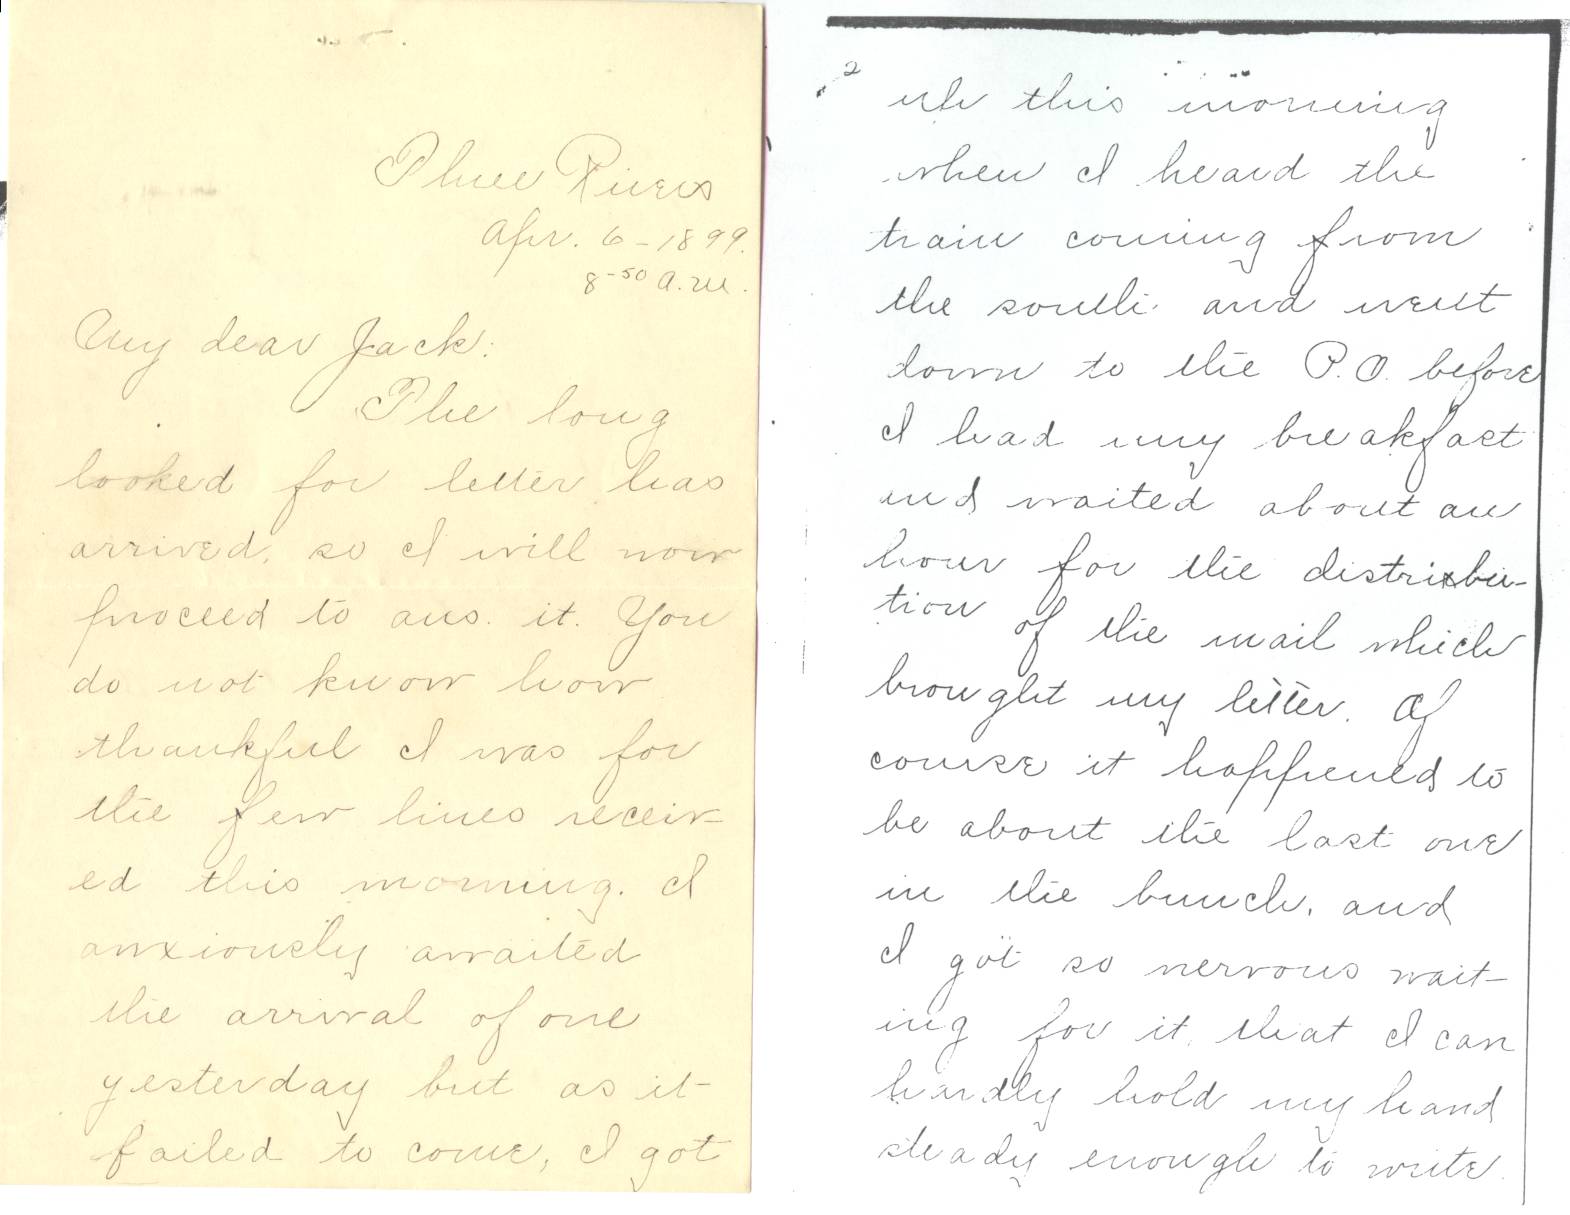 Three Rivers
Apr. 6-1899.
8-50 a.m.
My dear Jack:
The long
looked for letter has
arrived, so I will now
proceed to ans. it. You
do not know how
thankful I was for
the few lines receiv-
ed this morning. I
anxiously awaited
the arrival of one
yesterday but as it
failed to come, I got
2
up this morning
when I heard the
train coming from
the south and went
down to the P.O. before
I had my breakfast
and waited about an
hour for the distribu-
tion of the mail which
brought my letter. Of
course it happened to
be about the last one
in the bunch, and
I got so nervous wait-
ing for it, that I can
hardly hold my hand
steady enough to write.